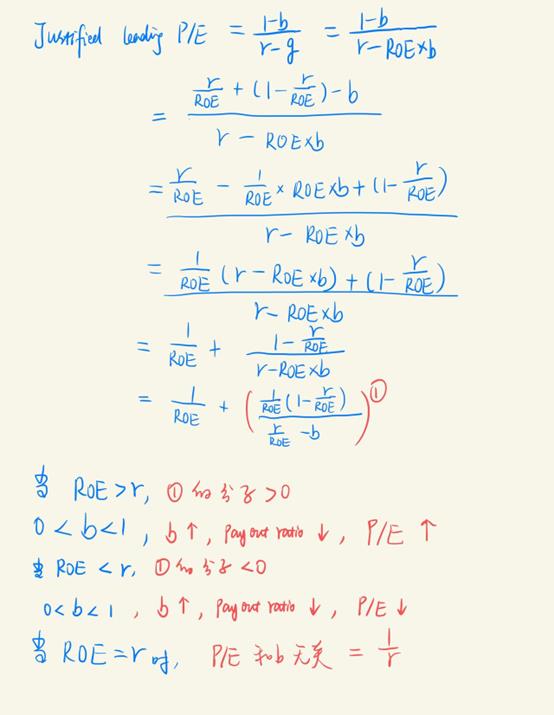 Justified leading P/E = (1-b)/(r-g) = (1-b)/(r-ROE×b)
= (r/ROE + (1-r/ROE) - b)/(r - ROE×b)
= (r/ROE - 1/ROE × ROE×b + (1-r/ROE))/(r - ROE×b)
= (1/ROE (r - ROE×b) + (1-r/ROE))/(r - ROE×b)
= 1/ROE + (1-r/ROE)/(r-ROE×b)
= 1/ROE + (1/ROE (1-r/ROE)/(r/ROE - b)) ①
当 ROE>r, ①的分子>0
0<b<1, b↑, Pay out ratio ↓, P/E ↑
当 ROE<r, ①的分子<0
0<b<1, b↑, Pay out ratio ↓, P/E↓
当 ROE=r时, P/E 和b无关 = 1/r